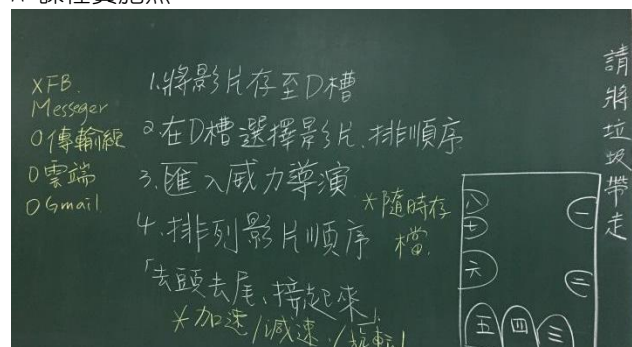 XFB.
Messeger
O傳輸線
O雲端
OGmail
1.將影片存至D槽
2.在D槽選擇影片、排順序
3.匯入威力導演
4.排列影片順序
「去頭去尾、接起來」
*加速/減速
*隨時存
檔.
請將垃圾帶走
八
七
六
五
四
三
二
一